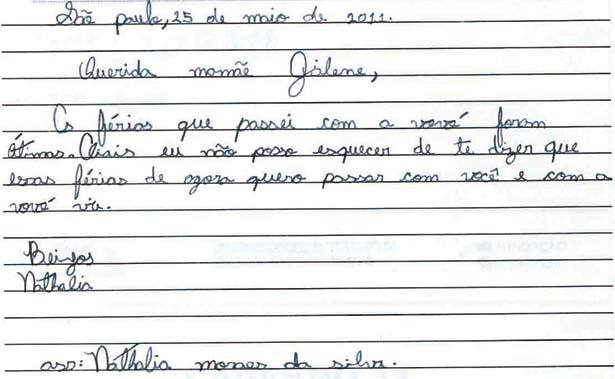 São paulo, 25 de maio de 2011.
Querida mamãe Gislene,
As férias que passei com a vovó foram
ótimas. Mais eu não posso esquecer de te dizer que
essas férias de agora quero passar com você e com a
vovó via.
Beijos
Nathalia
ass: Nathalia moraes da silva.